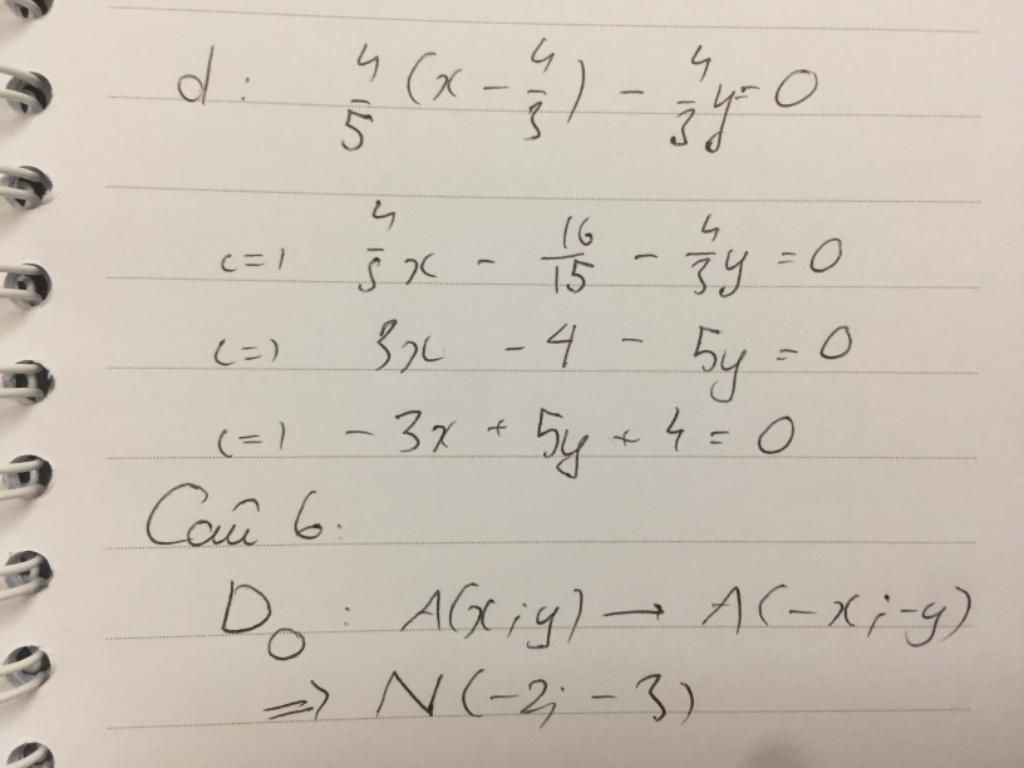 d: 4/5 (x - 4/3) - 4/3 y = 0
<=> 4/5 x - 16/15 - 4/3 y = 0
<=> 3x - 4 - 5y = 0
<=> -3x + 5y + 4 = 0
Câu 6:
D_O : A(x;y) → A(-x;-y)
=> N(-2; -3)